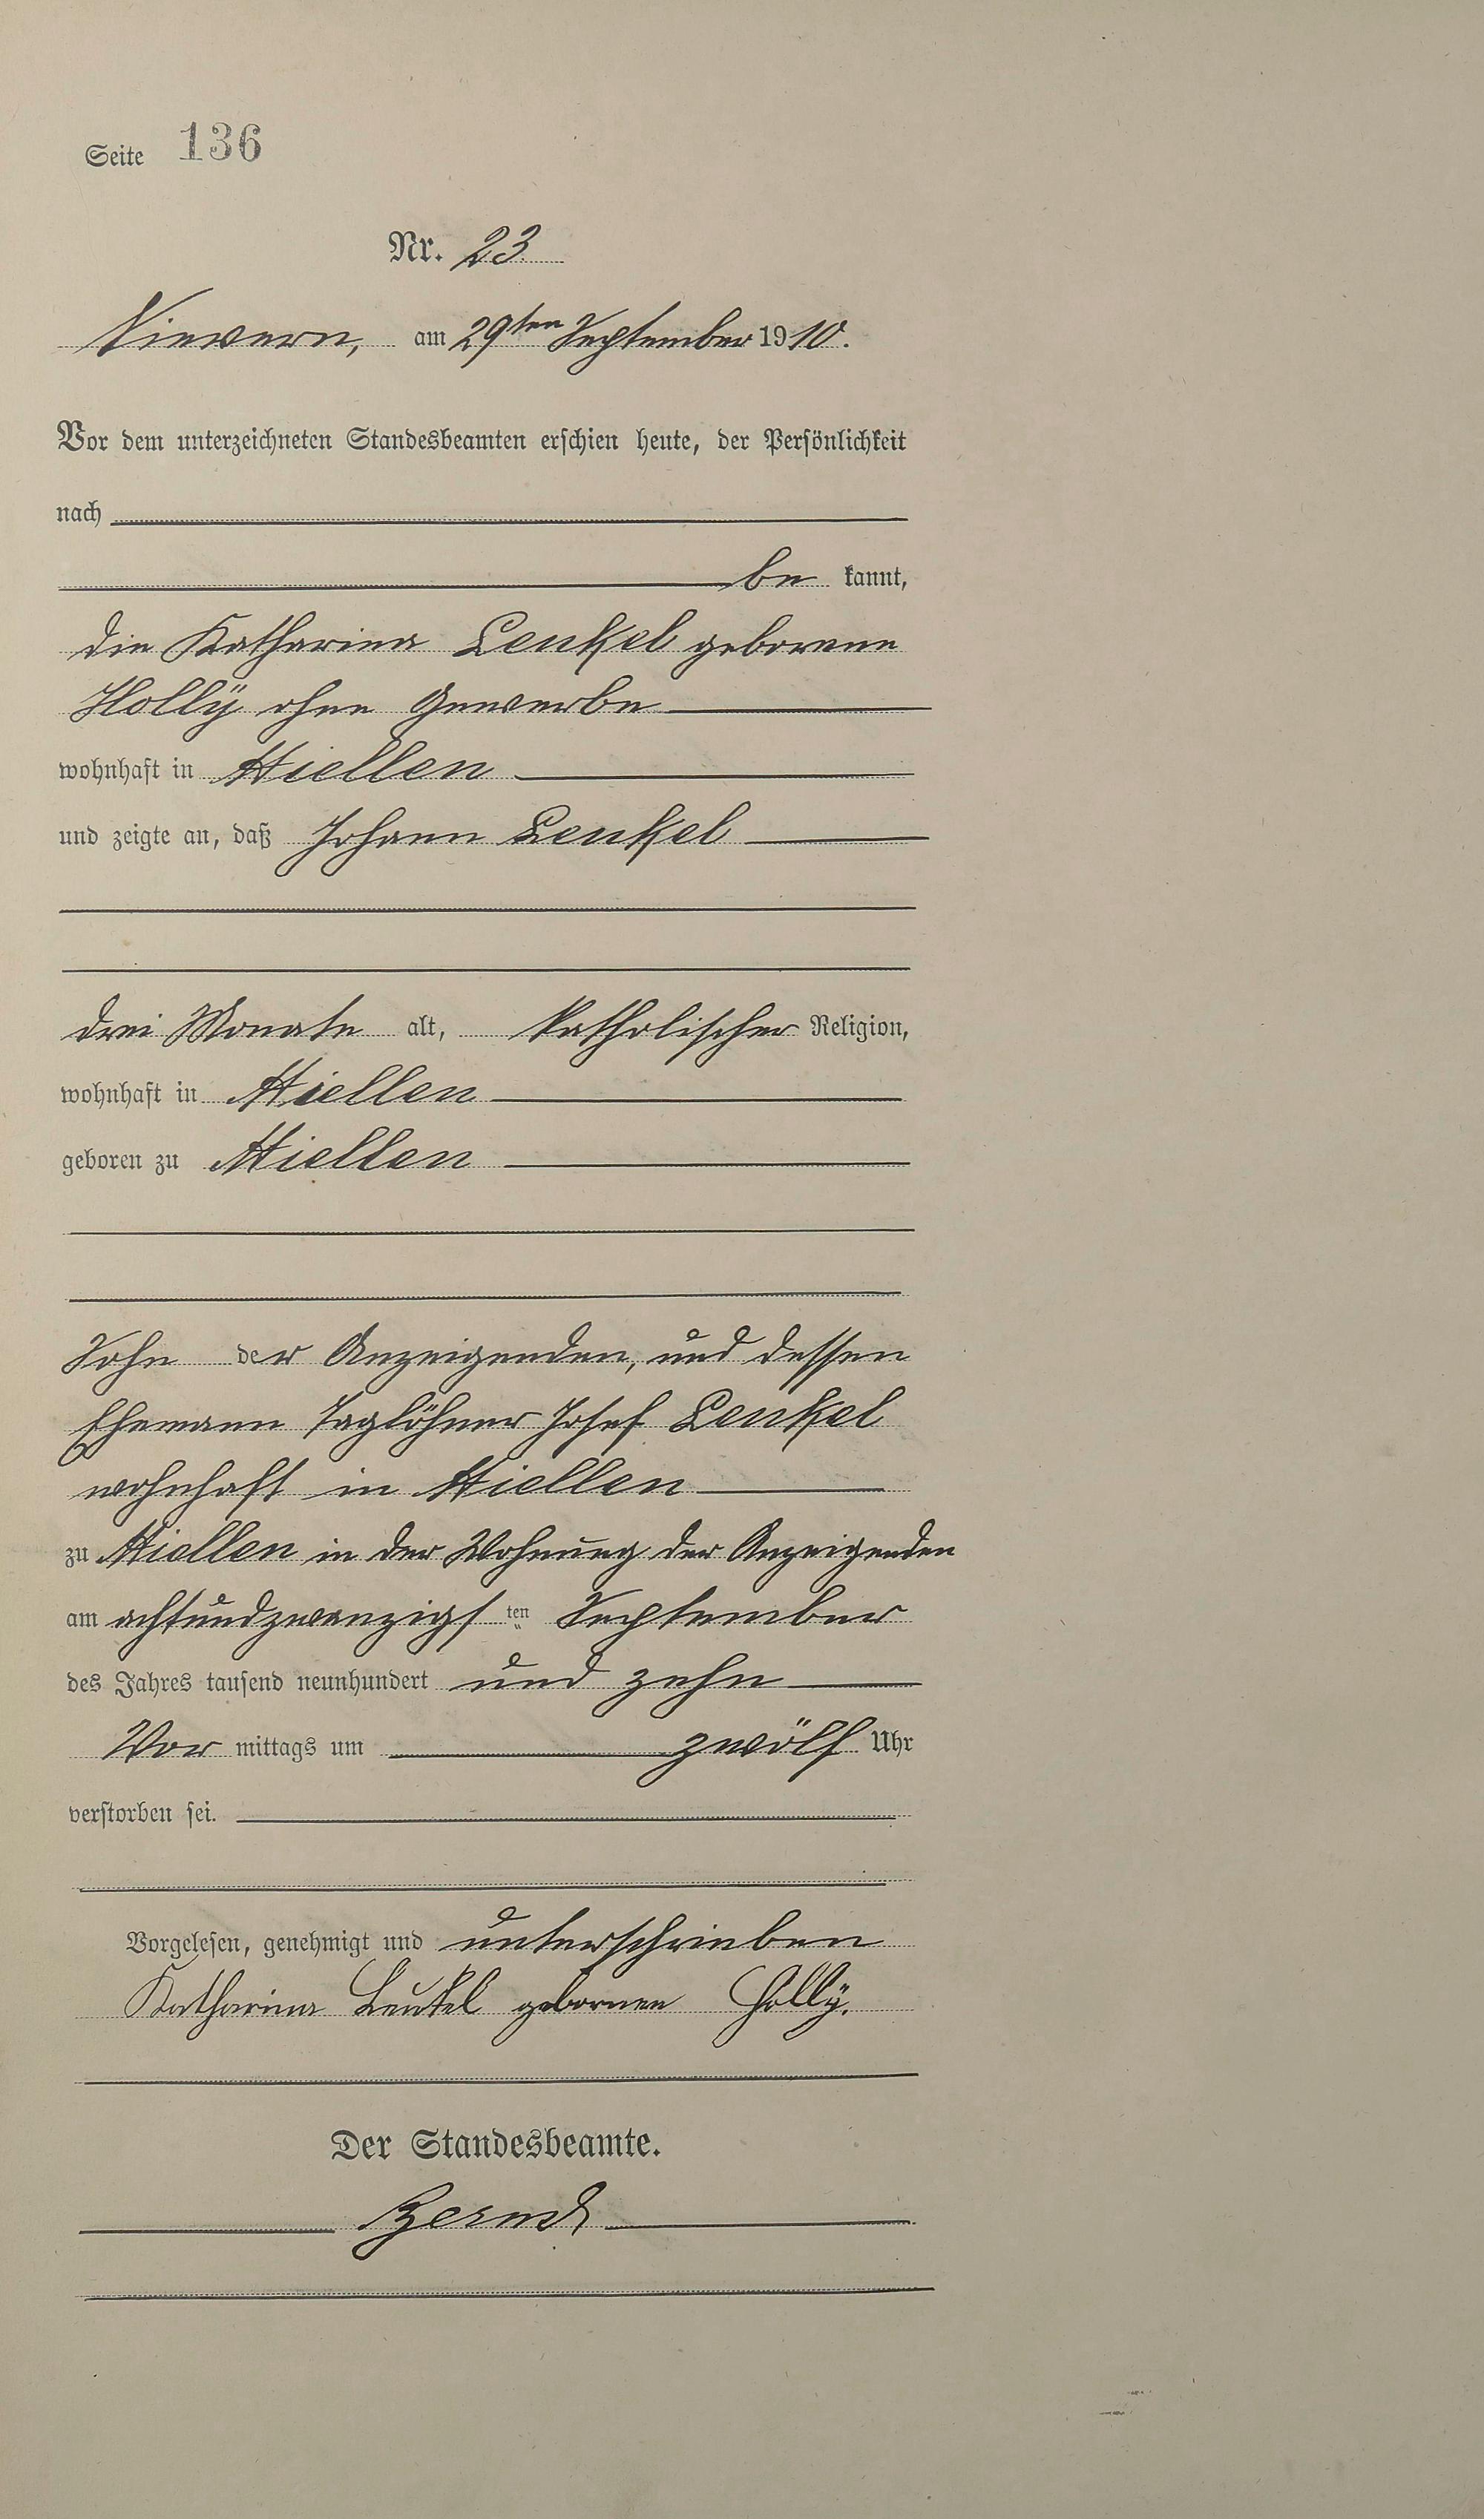 Seite 136
Nr. 23
Nievern, am 29ten September 1910.
Vor dem unterzeichneten Standesbeamten erschien heute, der Persönlichkeit
nach
be kannt,
die Katharina Lenkel geborene
Holly ohne Gewerbe
wohnhaft in Miellen
und zeigte an, daß Johann Lenkel
drei Monate alt, katholischer Religion,
wohnhaft in Miellen
geboren zu Miellen
Sohn der Anzeigenden, und dessen
Ehemann Taglöhner Josef Lenkel
wohnhaft in Miellen
zu Miellen in der Wohnung der Anzeigenden
am achtundzwanzigsten September
des Jahres tausend neunhundert und zehn
Vor mittags um zwölf Uhr
verstorben sei.
Vorgelesen, genehmigt und unterschrieben
Katharina Lenkel gebornen Holly.
Der Standesbeamte.